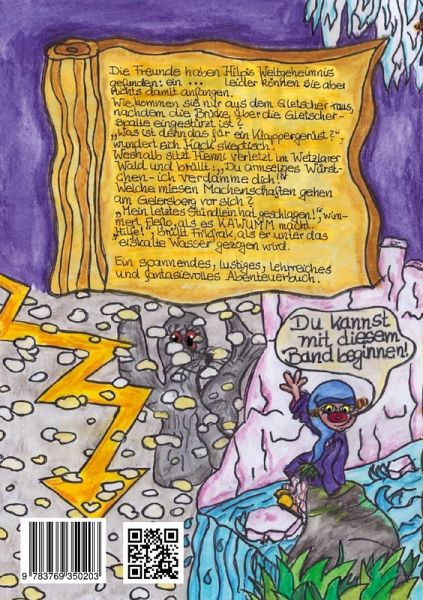 Die Freunde haben Hilpis Weltgeheimnis
gefunden: ein ... leider können sie aber
nichts damit anfangen.
Wie kommen sie nur aus dem Gletscher raus,
nachdem die Brücke, über die Gletscher-
spalte eingestürzt ist?
„Was ist denn das für ein Klappergerüst?",
wundert sich Hack skeptisch.
Weshalb sitzt Hienni verletzt im Wetzlarer
Wald und brüllt: „Du armseliges Würst-
chen - ich verdamme dich!"
Welche miesen Machenschaften gehen
am Geiersberg vor sich?
„Mein letztes Stündlein hat geschlagen!", wim-
mert Flefio, als es KAWUMM macht.
„Hilfe!", brüllt Frikfrak, als er unter das
eiskalte Wasser gezogen wird.
Ein spannendes, lustiges, lehrreiches
und fantasievolles Abenteuerbuch.
Du kannst
mit diesem
Band beginnen!
9 783769 350203